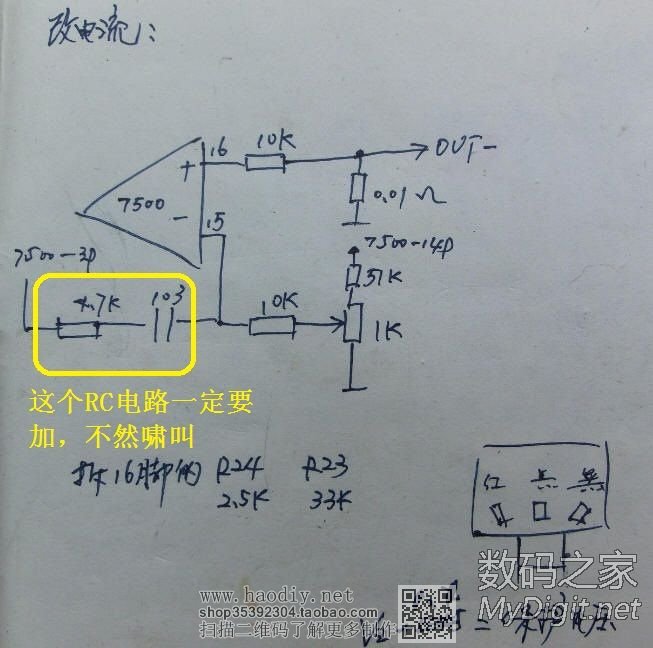 改电流:
16
10K
OUT-
+
7500
-
0.01Ω
15
7500-14P
7500-3P
51K
4.7K
103
10K
1K
这个RC电路一定要
加，不然啸叫
拆16脚的 R24 R23
2.5K 33K
红
黑
数码之家
MyDigit.net
www.haodiy.net
shop35392304.taobao.com
扫描二维码了解更多制作